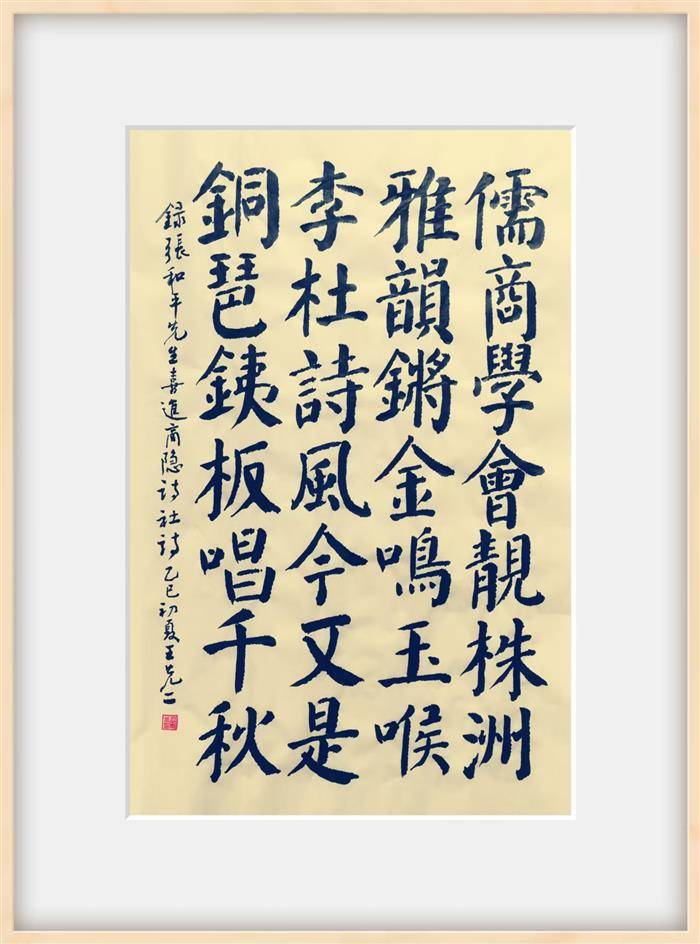 儒商學會靚株洲
雅韻鏘金鳴玉喉
李杜詩風今又是
銅琶銕板唱千秋
録張和平先生喜進商隐诗社诗乙巳初夏王